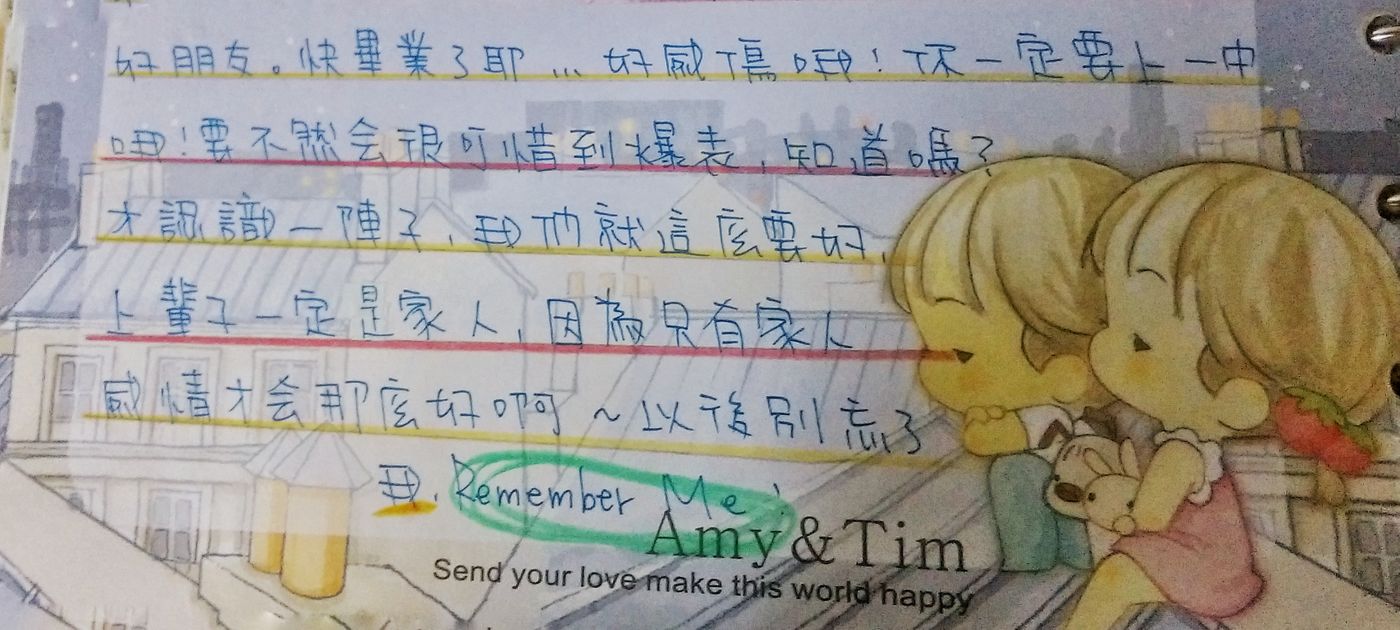 好朋友。快畢業了耶…好感傷哦！你一定要上一中
哦！要不然会很可惜到爆表，知道嗎？
才認識一陣子，我們就這麼要好，
上輩子一定是家人，因為只有家人
感情才会那麼好啊～以後別忘了
我，Remember Me！
Amy & Tim
Send your love make this world happy